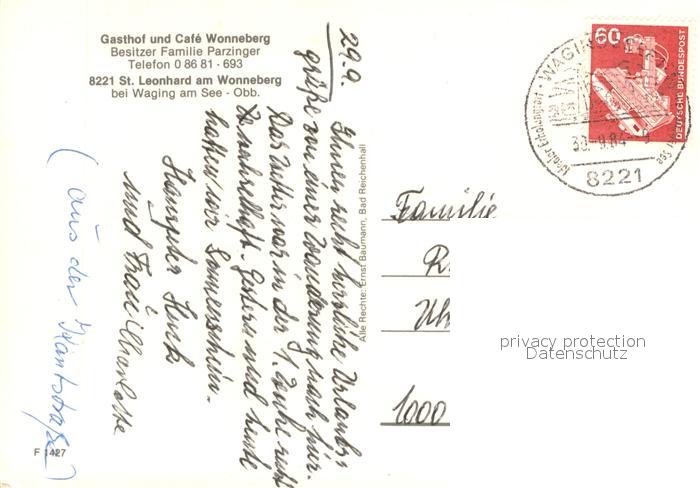 Gasthof und Café Wonneberg
Besitzer Familie Parzinger
Telefon 0 86 81 - 693
8221 St. Leonhard am Wonneberg
bei Waging am See - Obb.
29.9.
Ihnen recht herzliche Urlaubs-
grüße von einer Wanderung nach hier.
Das Wetter war in der 1. Woche recht
Gestern und heute
hatten wir Sonnenschein.
und Frau Charlotte
(aus der
Alle Rechte: Ernst Baumann, Bad Reichenhall
F 1427
Familie
R
Uh
1000
60
DEUTSCHE BUNDESPOST
WAGING
See
30.-9.84
8221
privacy protection
Datenschutz